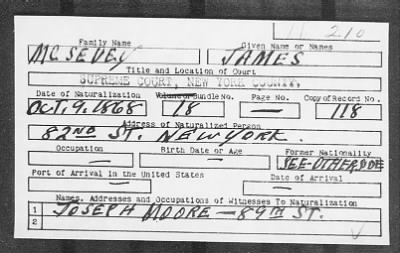 210
Family Name Given Name or Names
MC SEVEY JAMES
Title and Location of Court
SUPREME COURT, NEW YORK COUNTY.
Date of Naturalization Volume or Bundle No. Page No. Copy of Record No.
OCT. 9. 1868 18 — 118
Address of Naturalized Person
82ND ST. NEW YORK.
Occupation Birth Date or Age Former Nationality
— — SEE-OTHER SIDE
Port of Arrival in the United States Date of Arrival
— —
Names, Addresses and Occupations of Witnesses To Naturalization
1 JOSEPH MOORE — 89TH ST.
2